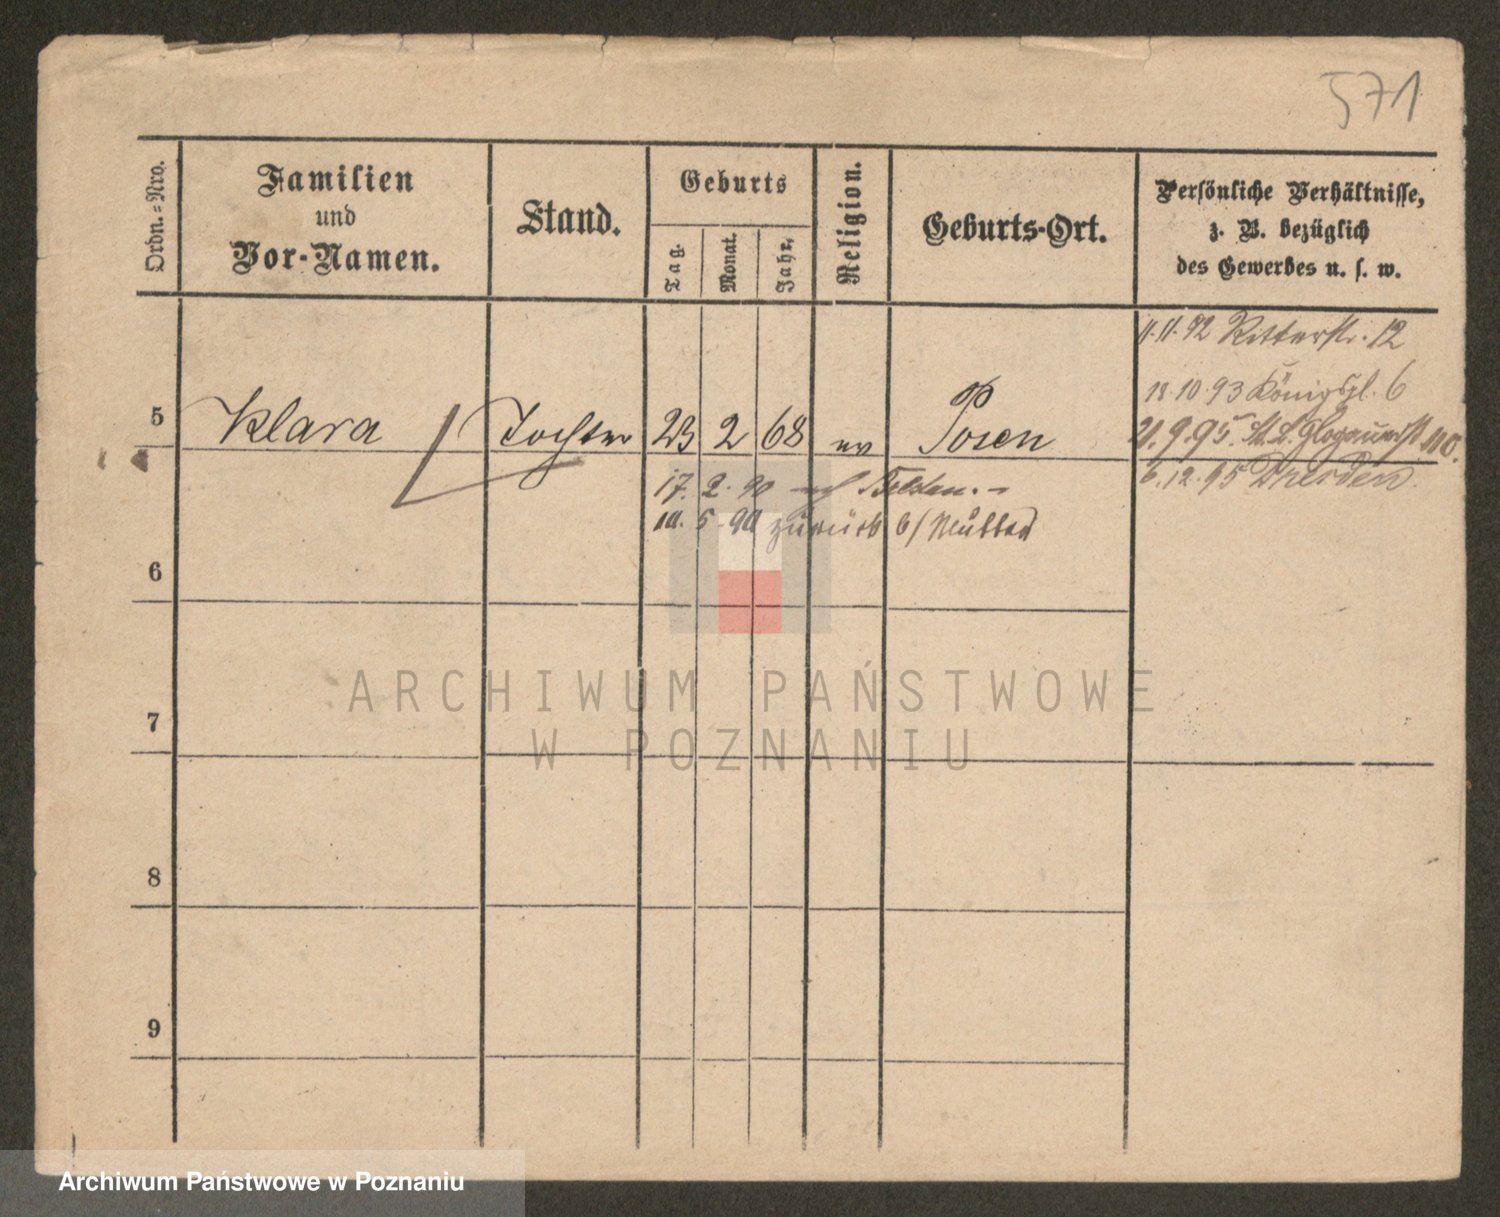 571
Ordn.=Nro.
Familien
und
Vor-Namen.
Stand.
Geburts
Tag.
Monat.
Jahr.
Religion.
Geburts-Ort.
Persönliche Verhältnisse,
z. B. bezüglich
des Gewerbes u. s. w.
11.11.92 Ritterstr. 12
18.10.93 Königspl. 6
5 Klara Tochter 23 2 68 ev Posen
21.9.95 St. L. Glogauerst 110.
6.12.95 Dresden.
17. 2. 90
10. 5. 90 zurück b/
6
7
8
9
ARCHIWUM PAŃSTWOWE
W POZNANIU
Archiwum Państwowe w Poznaniu